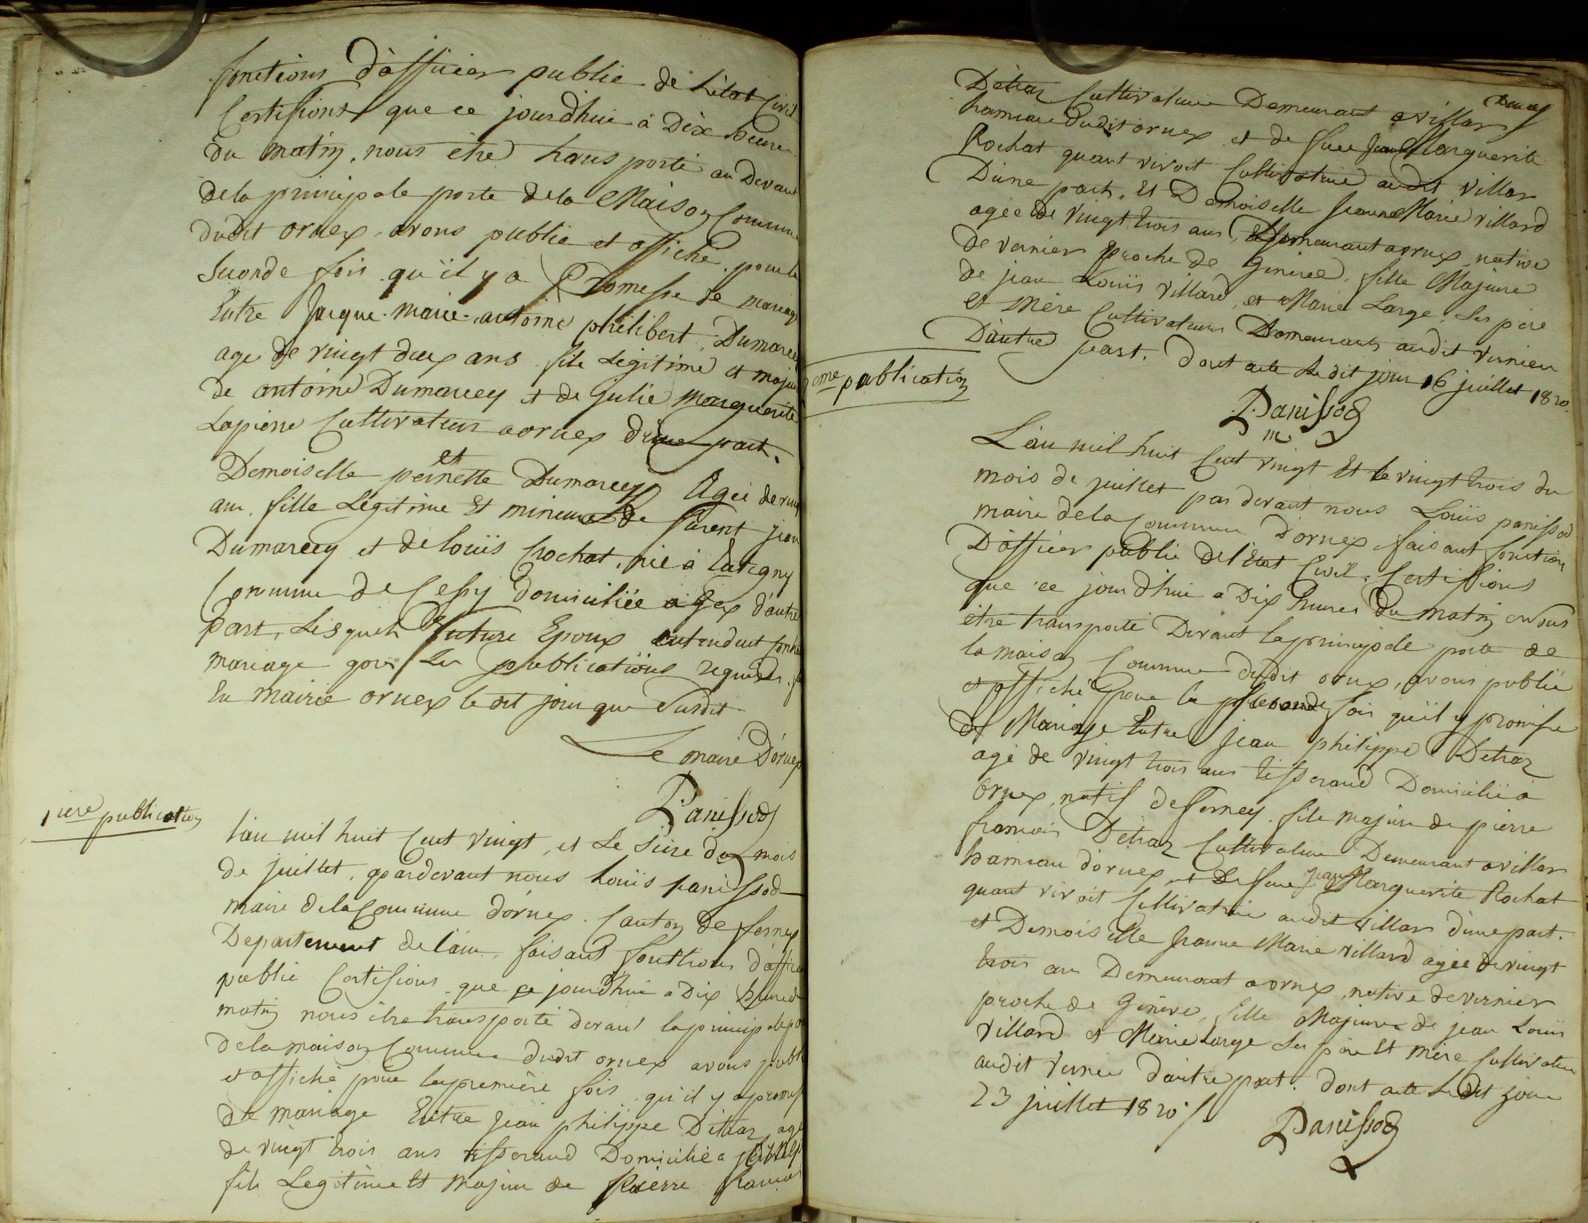 fonctions d'officier public de l'état Civil
Certifions que ce jourd'hui à Dix heures
du matin, nous être transporté au Devant
de la principale porte de la Maison Commune
dudit ornex avons publié et affiché pour la
seconde fois qu'il y a Promesse de mariage
Entre Jacque marie antoine philibert Dumarcey
age de vingt deux ans fils Legitime et majeur
de antoine Dumarcey et de Julie Marguerite
Lapierre Cultivateurs a ornex d'une part.
et
Demoiselle pernette Dumarcey Agée de vingt
ans, fille Légitime Et mineure de Jean
Dumarcey et de louïs Crochat, née à
Commune de Cessy domiciliée à Gex d'autre
Part, Lesquels future Epoux
mariage pour les publications requises
En mairie ornex le dit jour que Susdit
Le maire D'ornex
Panissod
1iere publication
L'an mil huit Cent vingt, et Le Seize du mois
de juillet, pardevant nous Louïs panissod
maire de la Commune d'ornex, Canton de ferney
Departement de l'ain, faisant fonctions d'officier
public Certifions que ce jourd'hui a Dix heures du
matin nous être transporté devant la principale porte
de la maison Commune dudit ornex avons publié
et affiché pour la première fois qu'il y a promesse
de mariage Entre Jean philippe Détraz agé
de vingt trois ans tisserand Domicilié à
fils Legitime Et majeur de Pierre francois
Détraz Cultivateur Demeurant a villars
hameau dudit ornex et de feue Jeanne Marguerite
Rochat quant vivoit Cultivatrice audit villars
D'une part, Et Demoiselle Jeanne Marie villard
agée de vingt trois ans, Demeurant a ornex, native
de vernier proche de Genève, fille Majeure
de jean Louïs villard, et Marie Large, ses père
et mère Cultivateurs Demeurants audit vernier
D'autre part. dont acte Le dit jour 16 juillet 1820.
Panissod
2eme publication
L'an mil huit Cent vingt Et le vingt trois du
mois de juillet par devant nous Louïs panissod
maire de la Commune d'ornex faisant fonction
D'officier public de l'Etat Civil, Certifions
que ce jourd'hui a Dix heures du matin nous
être transporté Devant la principale porte de
la maison Commune dudit ornex, avons publié
et affiché pour la seconde fois qu'il y promesse
de Mariage Entre Jean philippe Détraz
agé de vingt trois ans tisserand Domicilié à
ornex, natif de ferney, fils majeur de pierre
francois Détraz Cultivateur Demeurant a villars
hameau d'ornex et de feue Jeanne Marguerite Rochat
quant vivoit Cultivatrice audit villars d'une part.
et Demoiselle Jeanne Marie villard agée de vingt
trois ans Demeurant a ornex, native de vernier
proche de Genève, fille Majeure de jean Louïs
villard et Marie Large Ses père Et mère Cultivateurs
audit vernier d'autre part. dont acte Le dit jour
23 juillet 1820
Panissod